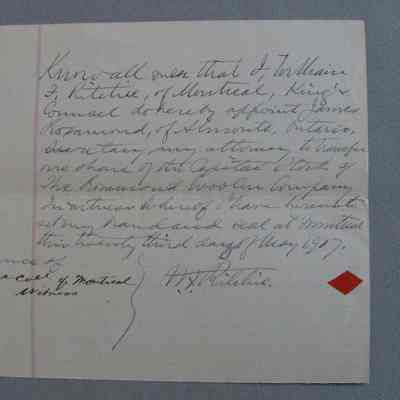 Know all men that I, William
F. Ritchie, of Montreal, King's
Counsel do hereby appoint James
Rosamond, of Almonte, Ontario,
my attorney to transfer
one share of the Capital Stock of
The Rosamond Woolen Company
In witness whereof I have hereunto
set my hand and seal at Montreal
this twenty third day of May 1907.
nce of
of Montreal
Witness
W.F. Ritchie.